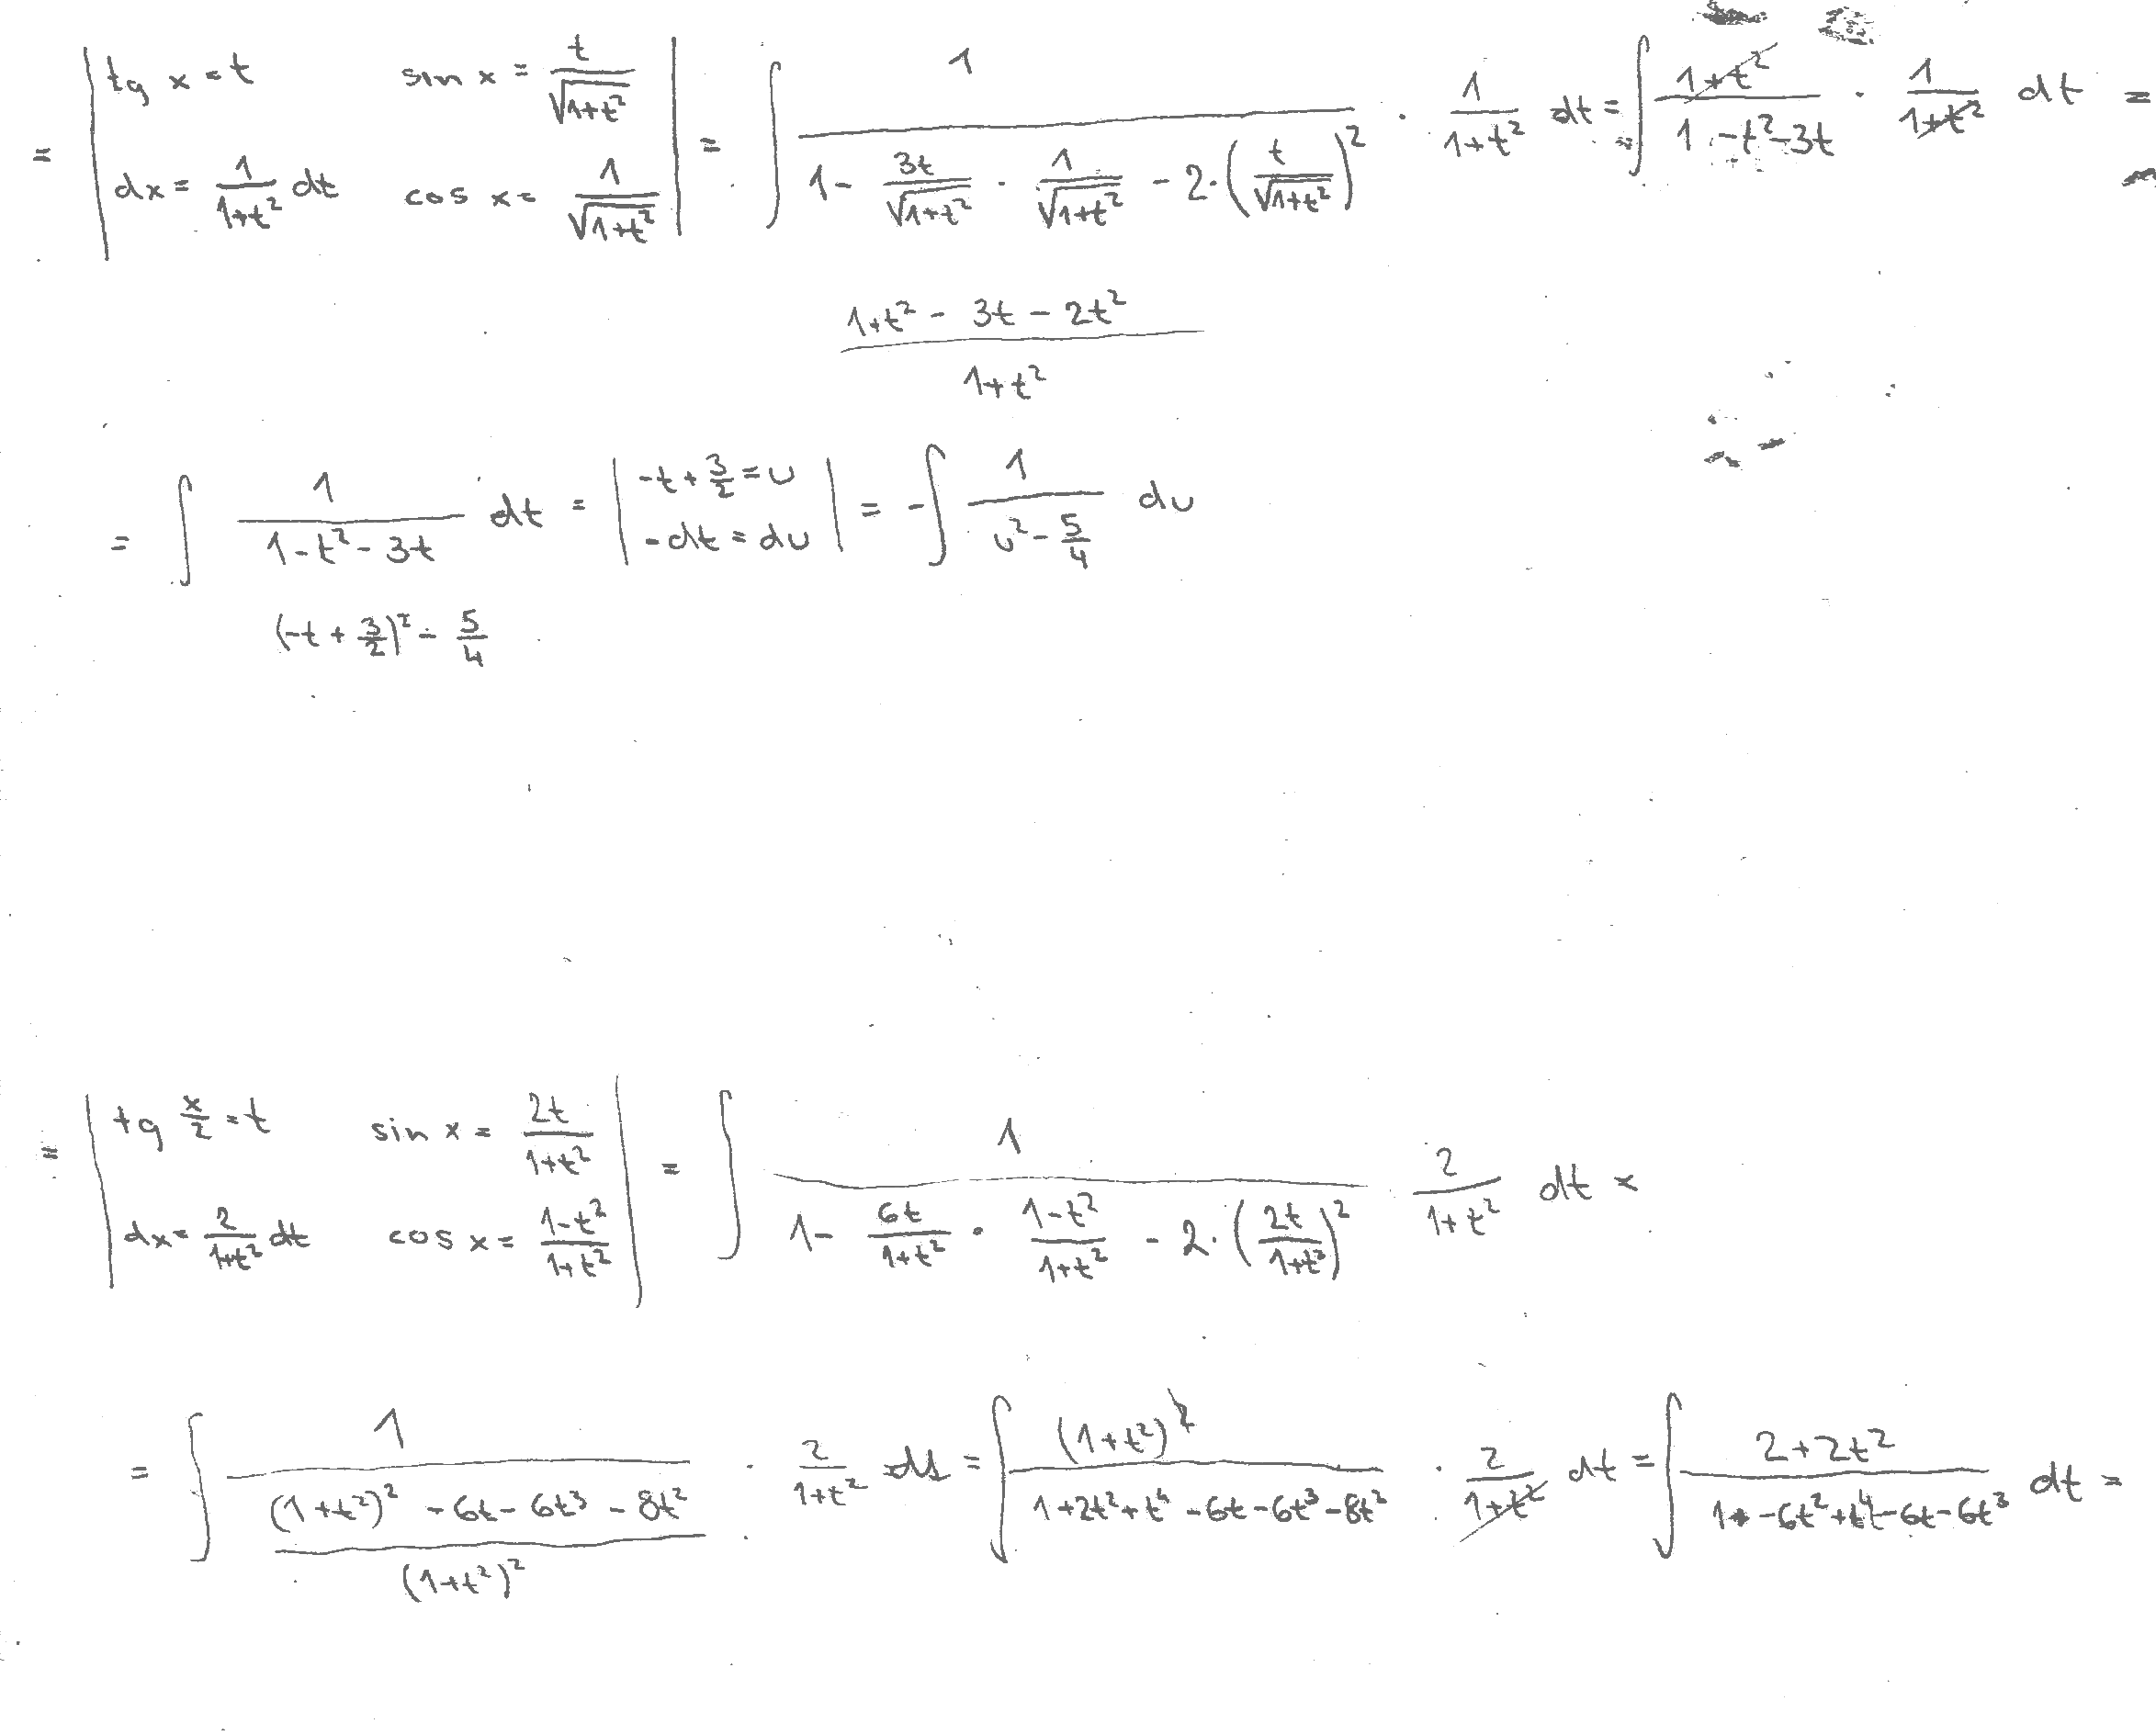 = | tg x = t   sin x = t/√(1+t²)   dx = 1/(1+t²) dt   cos x = 1/√(1+t²) | = ∫ 1/(1 - 3t/√(1+t²) · 1/√(1+t²) - 2·(t/√(1+t²))²) · 1/(1+t²) dt = ∫ (1+t²)/(1-t²-3t) · 1/(1+t²) dt =
(1+t² - 3t - 2t²)/(1+t²)
= ∫ 1/(1-t²-3t) dt = | -t + 3/2 = u   -dt = du | = -∫ 1/(u² - 5/4) du
(-t + 3/2)² - 5/4
= | tg x/2 = t   sin x = 2t/(1+t²)   dx = 2/(1+t²) dt   cos x = (1-t²)/(1+t²) | = ∫ 1/(1 - 6t/(1+t²) · (1-t²)/(1+t²) - 2·(2t/(1+t²))²) · 2/(1+t²) dt =
= ∫ 1/(((1+t²)² - 6t - 6t³ - 8t²)/(1+t²)²) · 2/(1+t²) dt = ∫ (1+t²)²/(1+2t²+t⁴-6t-6t³-8t²) · 2/(1+t²) dt = ∫ (2+2t²)/(1-6t²+t⁴-6t-6t³) dt =